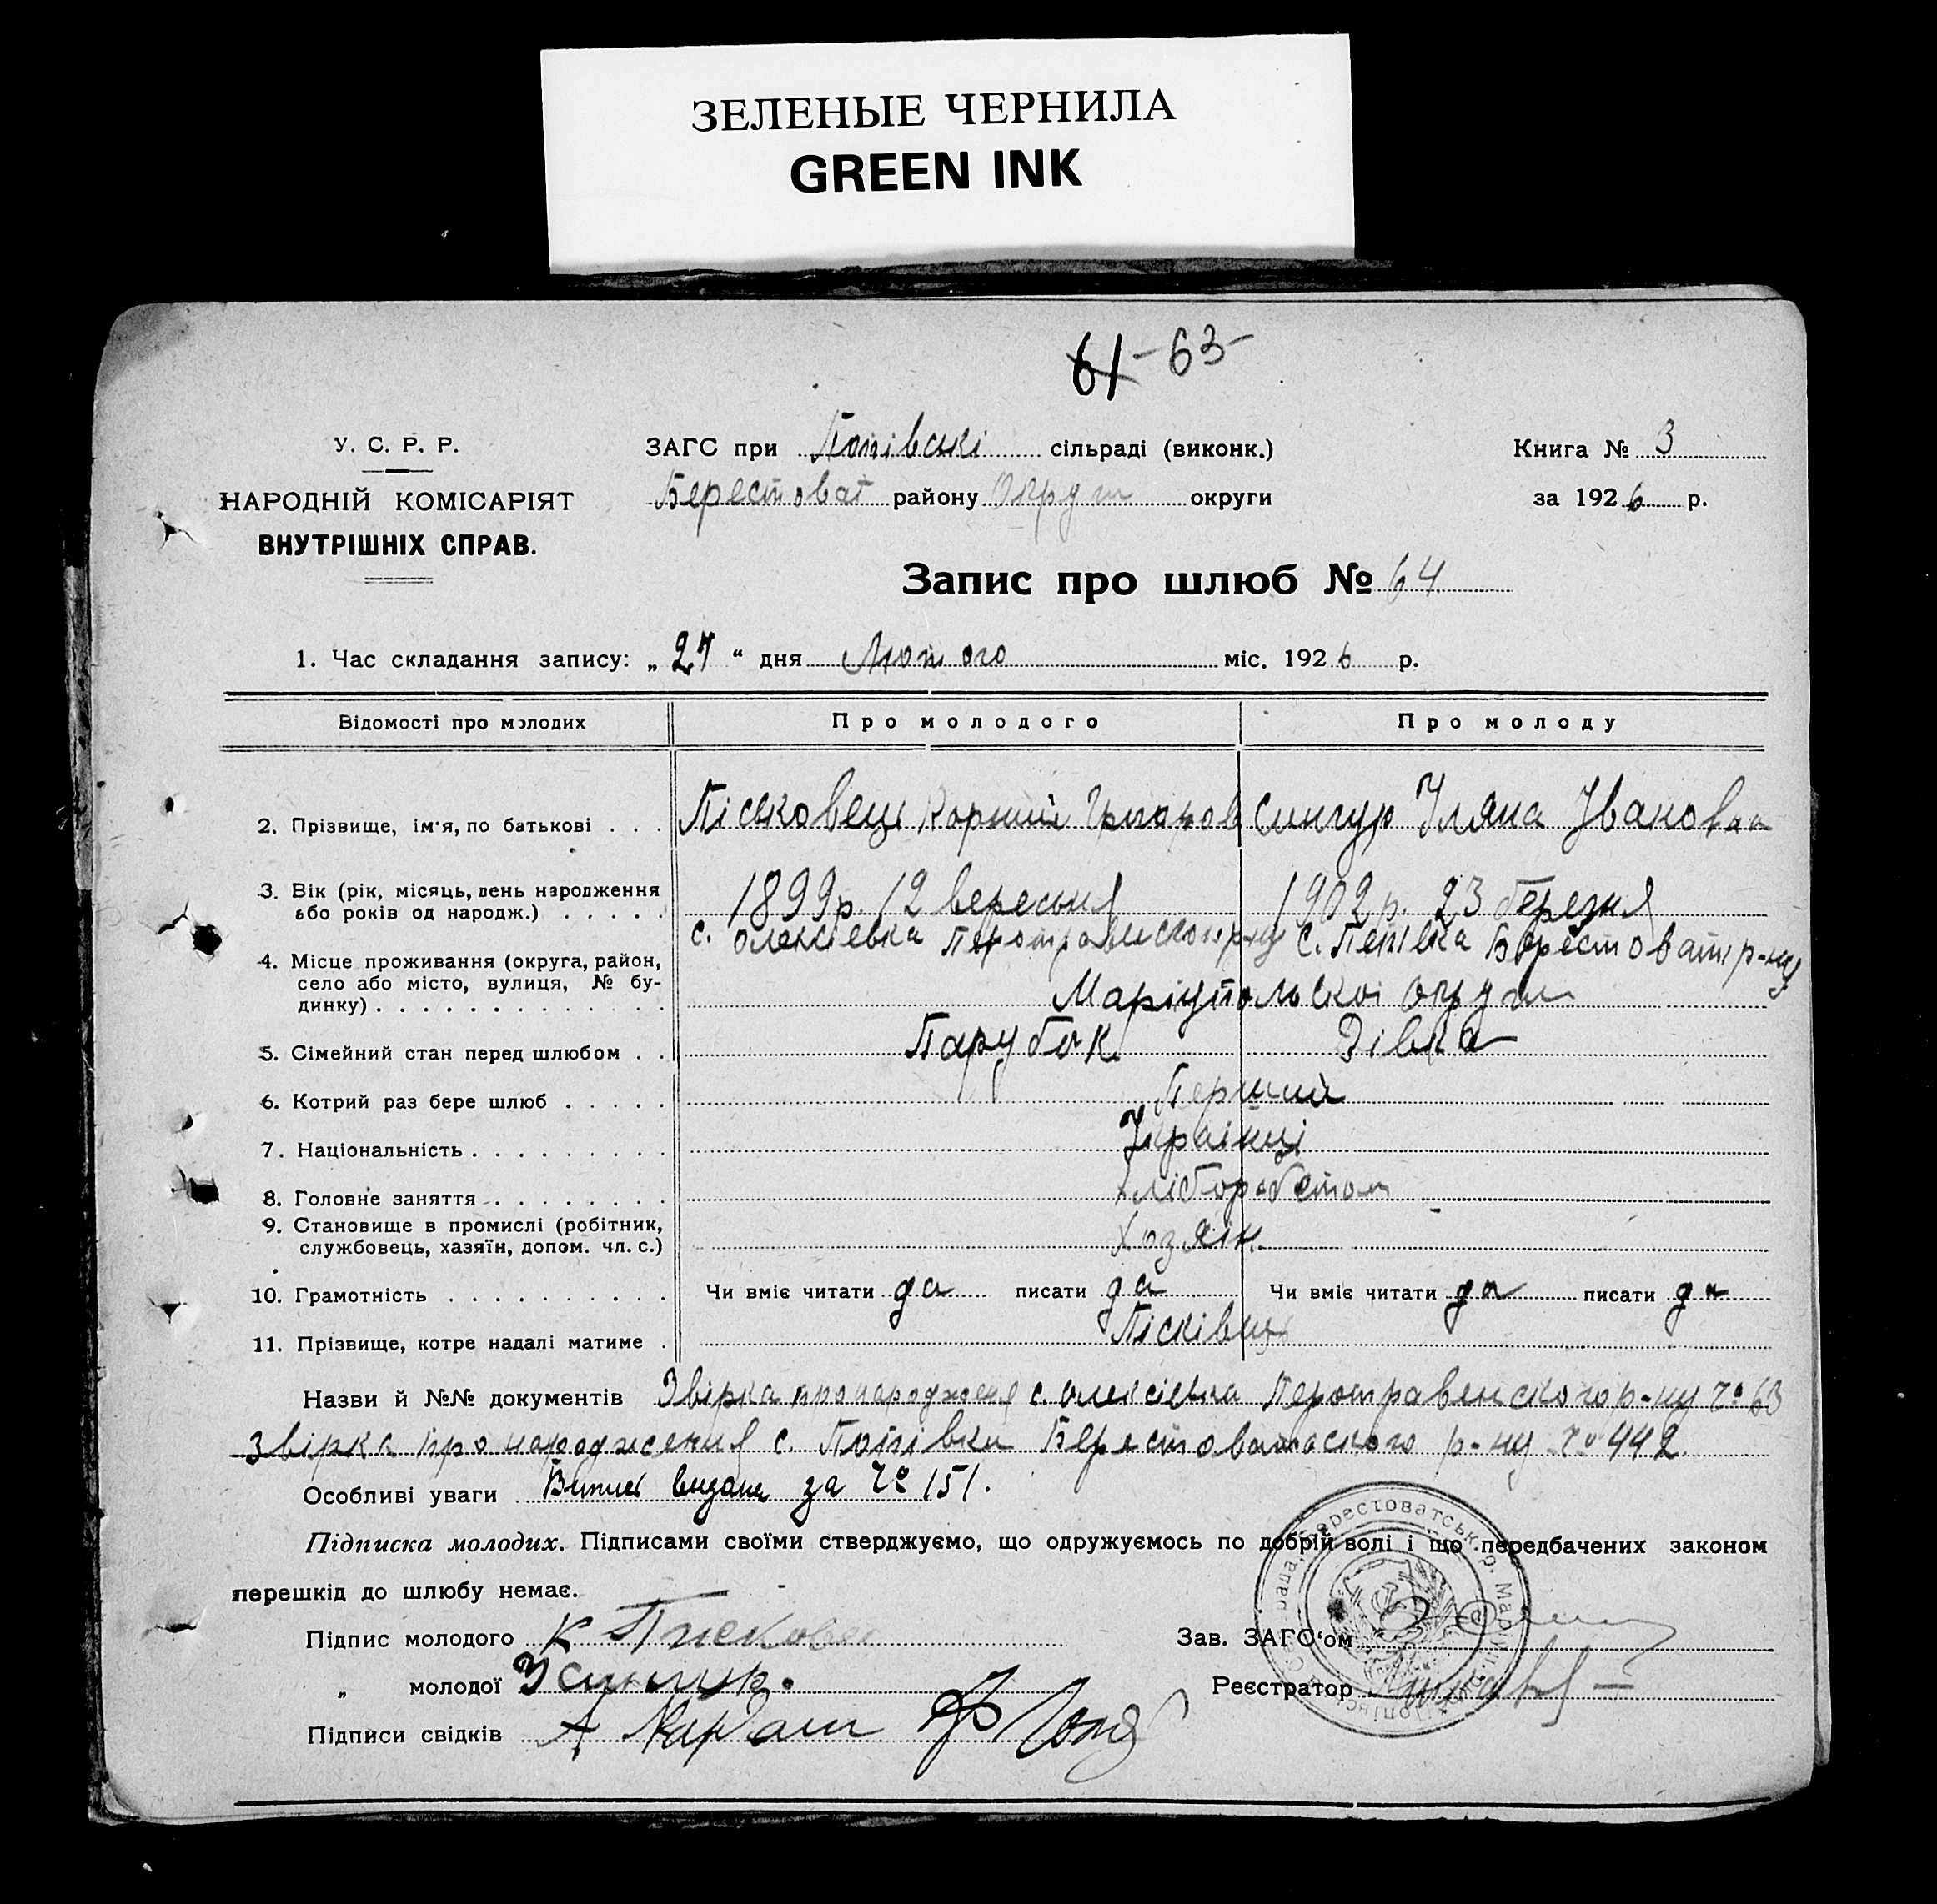 ЗЕЛЕНЫЕ ЧЕРНИЛА
GREEN INK
61 - 63 -
У. С. Р. Р.
НАРОДНІЙ КОМІСАРІЯТ
ВНУТРІШНІХ СПРАВ.
ЗАГС при Попівські сільраді (виконк.)
Берестоват району Округи округи
Книга № 3
за 1926 р.
Запис про шлюб № 64
1. Час складання запису: „27“ дня Лютого міс. 1926 р.
Відомості про молодих Про молодого Про молоду
2. Прізвище, ім'я, по батькові . . . Піськовець Корній Григоров Сингур Уляна Івановна
3. Вік (рік, місяць, день народження або років од народж.) . . . . . 1899 р. 12 вересня 1902 р. 23 березня
4. Місце проживання (округа, район, село або місто, вулиця, № будинку) . . . с. Олексіевка р-ну с. Попівка Берестоват р-ну
Маріупольскої округи
5. Сімейний стан перед шлюбом . . Парубок Дівка
6. Котрий раз бере шлюб . . . . . Перший
7. Національність . . . . . . . . . Українці
8. Головне заняття . . . . . . . . Хліборобством
9. Становище в промислі (робітник, службовець, хазяїн, допом. чл. с.) Хозяін
10. Грамотність . . . . . . . . . . Чи вміє читати да писати да Чи вміє читати да писати да
11. Прізвище, котре надалі матиме . Пісківец
Назви й №№ документів Звірка про народженя с. Олексіевка р-ну № 63
Звірка про народження с. Попівки Берестоватського р-ну № 442
Особливі уваги Випис видана за № 151.
Підписка молодих. Підписами своїми стверджуємо, що одружуємось по добрій волі і що передбачених законом
перешкід до шлюбу немає.
Підпис молодого К Писковец
„ молодої У Сингур.
Підписи свідків А
Зав. ЗАГС'ом
Реєстратор
рада, Берестоватськ. р. Маріуп.